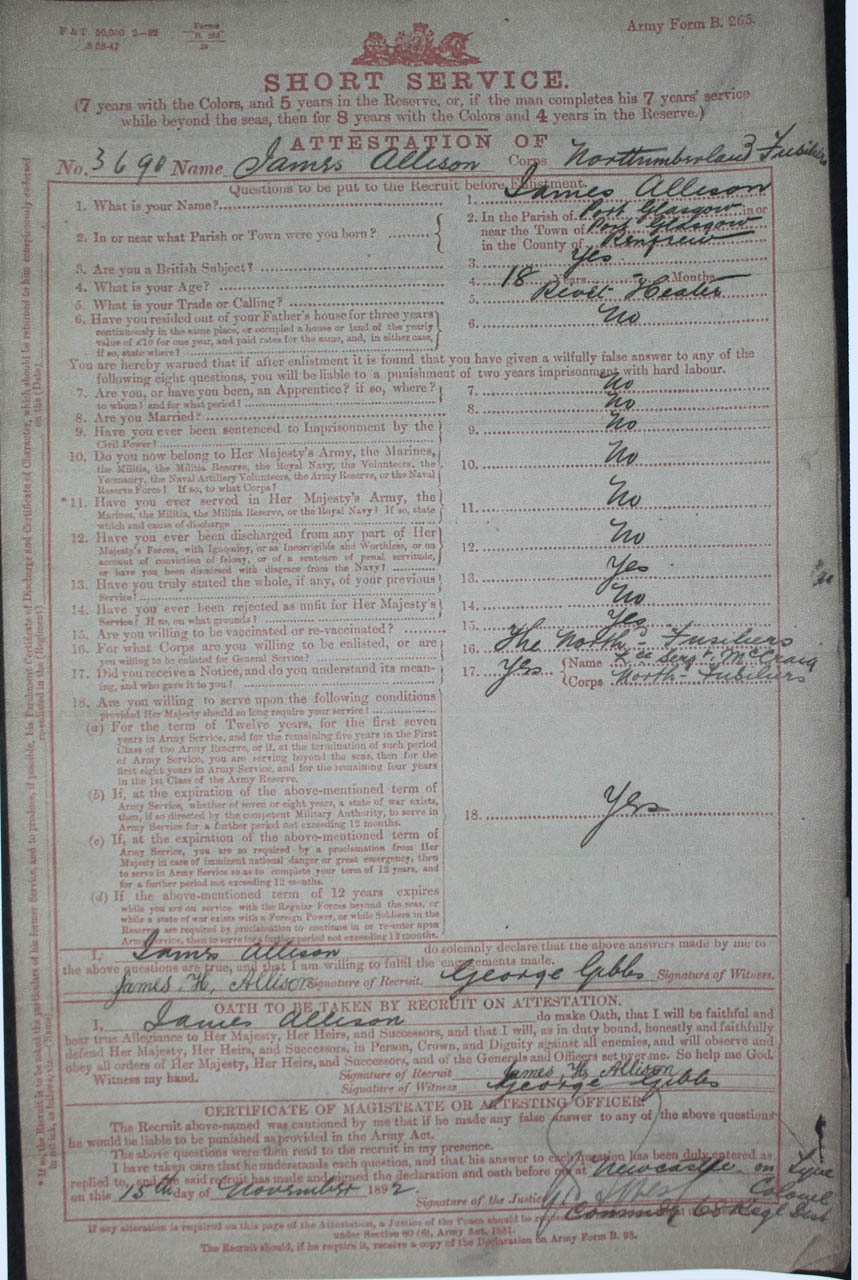 F & T 50,000 2—92
Forms
B. 265
Army Form B. 265.
SHORT SERVICE.
(7 years with the Colors, and 5 years in the Reserve, or, if the man completes his 7 years' service
while beyond the seas, then for 8 years with the Colors and 4 years in the Reserve.)
ATTESTATION OF
No. 3690 Name James Allison Corps Northumberland Fusiliers
Questions to be put to the Recruit before Enlistment.
1. What is your Name? 1. James Allison
2. In or near what Parish or Town were you born?
2. In the Parish of Port Glasgow in or
near the Town of Port Glasgow
in the County of Renfrew
3. Are you a British Subject? 3. Yes
4. What is your Age? 4. 18 Years - Months
5. What is your Trade or Calling? 5. Rivet Heater
6. Have you resided out of your Father's house for three years
continuously in the same place, or occupied a house or land of the yearly
value of £10 for one year, and paid rates for the same, and, in either case,
if so, state where? 6. No
You are hereby warned that if after enlistment it is found that you have given a wilfully false answer to any of the
following eight questions, you will be liable to a punishment of two years imprisonment with hard labour.
7. Are you, or have you been, an Apprentice? if so, where?
to whom? and for what period? 7. No
8. Are you Married? 8. No
9. Have you ever been sentenced to Imprisonment by the
Civil Power? 9. No
10. Do you now belong to Her Majesty's Army, the Marines,
the Militia, the Militia Reserve, the Royal Navy, the Volunteers, the
Yeomanry, the Naval Artillery Volunteers, the Army Reserve, or the Naval
Reserve Force? If so, to what Corps? 10. No
*11. Have you ever served in Her Majesty's Army, the
Marines, the Militia, the Militia Reserve, or the Royal Navy? If so, state
which and cause of discharge 11. No
12. Have you ever been discharged from any part of Her
Majesty's Forces, with Ignominy, or as Incorrigible and Worthless, or on
account of conviction of felony, or of a sentence of penal servitude,
or have you been dismissed with disgrace from the Navy? 12. No
13. Have you truly stated the whole, if any, of your previous
Service? 13. Yes
14. Have you ever been rejected as unfit for Her Majesty's
Service? If so, on what grounds? 14. No
15. Are you willing to be vaccinated or re-vaccinated? 15. Yes
16. For what Corps are you willing to be enlisted, or are
you willing to be enlisted for General Service? 16. The North- Fusiliers
17. Did you receive a Notice, and do you understand its mean-
ing, and who gave it to you? 17. Yes
Name Sergt McCraig
Corps North- Fusiliers
18. Are you willing to serve upon the following conditions
provided Her Majesty should so long require your service?
(a) For the term of Twelve years, for the first seven
years in Army Service, and for the remaining five years in the First
Class of the Army Reserve, or if, at the termination of such period
of Army Service, you are serving beyond the seas, then for the
first eight years in Army Service, and for the remaining four years
in the 1st Class of the Army Reserve.
(b) If, at the expiration of the above-mentioned term of
Army Service, whether of seven or eight years, a state of war exists,
then, if so directed by the competent Military Authority, to serve in
Army Service for a further period not exceeding 12 months.
18. Yes
(c) If, at the expiration of the above-mentioned term of
Army Service, you are so required by a proclamation from Her
Majesty in case of imminent national danger or great emergency, then
to serve in Army Service so as to complete your term of 12 years, and
for a further period not exceeding 12 months.
(d) If the above-mentioned term of 12 years expires
while you are on service with the Regular Forces beyond the seas, or
while a state of war exists with a Foreign Power, or while Soldiers in the
Reserve are required by proclamation to continue in or re-enter upon
Army Service, then to serve for a further period not exceeding 12 months.
I, James Allison do solemnly declare that the above answers made by me to
the above questions are true, and that I am willing to fulfil the engagements made.
James H. Allison Signature of Recruit. George Gibbs Signature of Witness.
OATH TO BE TAKEN BY RECRUIT ON ATTESTATION.
I, James Allison do make Oath, that I will be faithful and
bear true Allegiance to Her Majesty, Her Heirs, and Successors, and that I will, as in duty bound, honestly and faithfully
defend Her Majesty, Her Heirs, and Successors, in Person, Crown, and Dignity against all enemies, and will observe and
obey all orders of Her Majesty, Her Heirs, and Successors, and of the Generals and Officers set over me. So help me God.
Witness my hand. Signature of Recruit James H. Allison
Signature of Witness George Gibbs
CERTIFICATE OF MAGISTRATE OR ATTESTING OFFICER.
The Recruit above-named was cautioned by me that if he made any false answer to any of the above questions
he would be liable to be punished as provided in the Army Act.
The above questions were then read to the recruit in my presence.
I have taken care that he understands each question, and that his answer to each question has been duly entered as
replied to, and the said recruit has made and signed the declaration and oath before me at Newcastle on Tyne
on this 15th day of November 1892.
Signature of the Justice
Colonel
Commdg 68 Regl Dist
If any alteration is required on this page of the Attestation, a Justice of the Peace should be
under Section 80 (6), Army Act, 1881.
The Recruit should, if he require it, receive a copy of the Declaration on Army Form B. 93.
* If so, the Recruit is to be asked the particulars of his former Service, and to produce, if possible, his Parchment Certificate of Discharge and Certificate of Character, which should be returned to him conspicuously endorsed
in red ink, as follows, viz.—(Name) re-enlisted in the (Regiment) on the (Date)